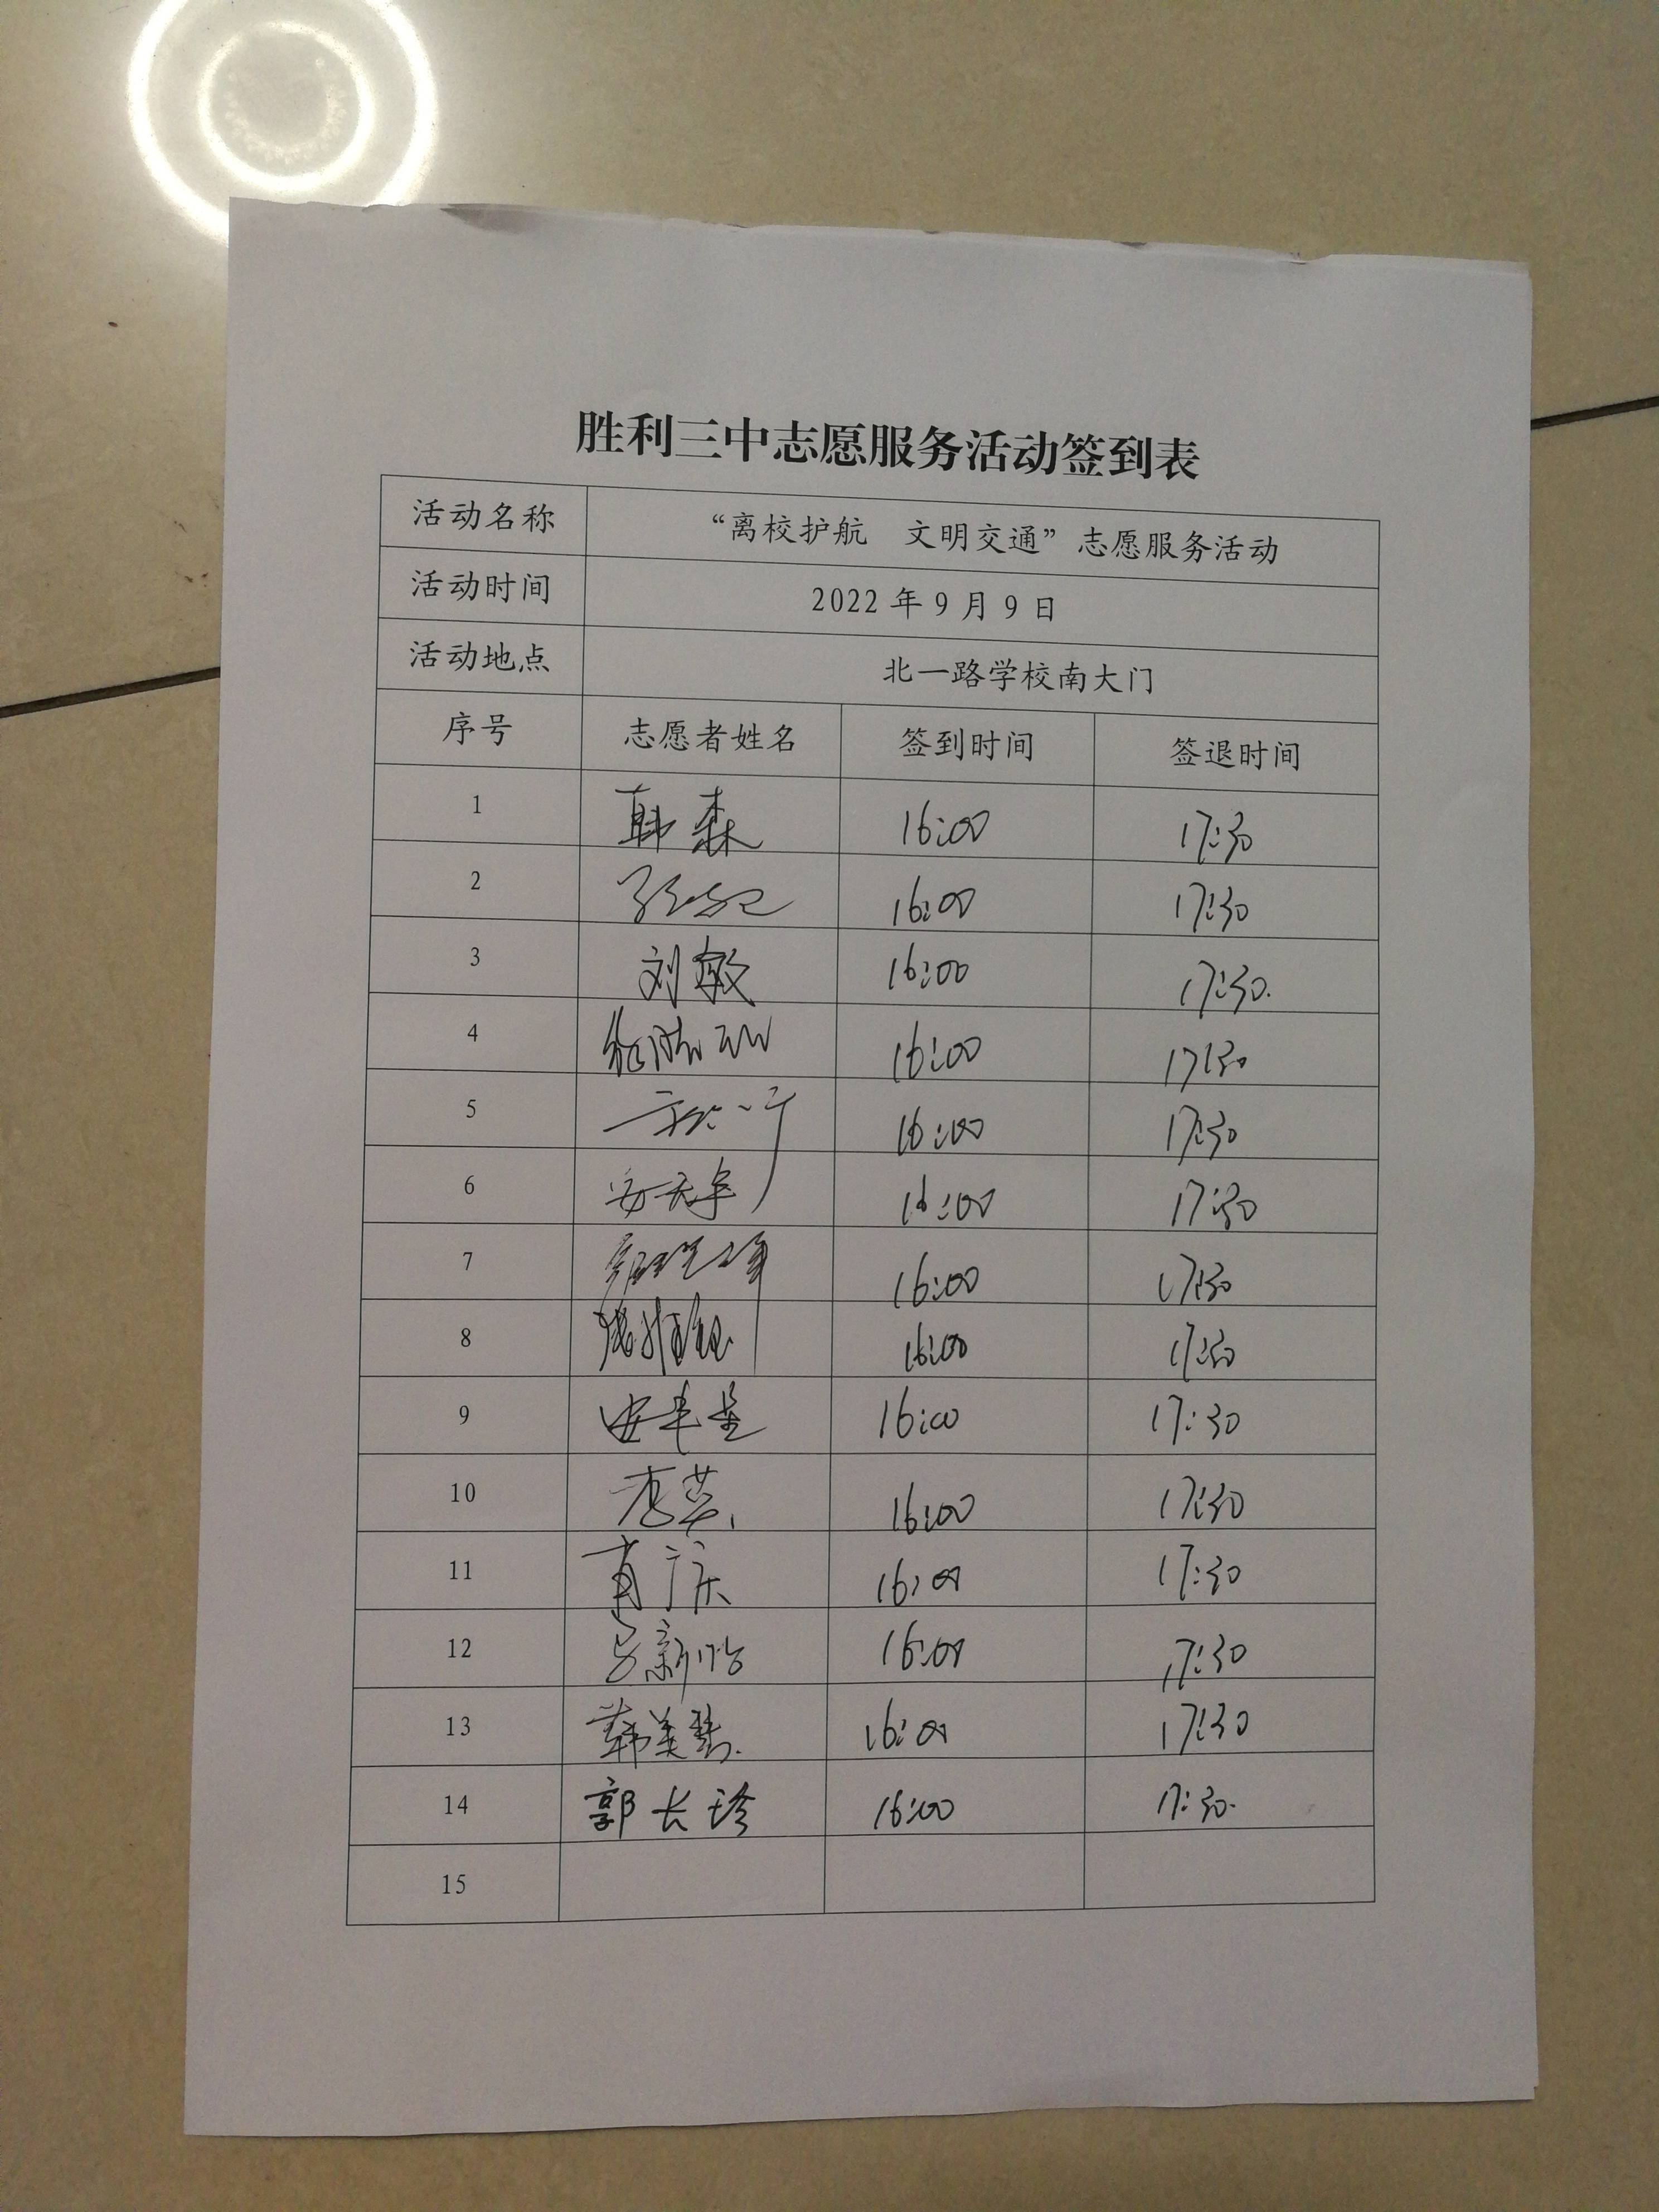 胜利三中志愿服务活动签到表
活动名称 “离校护航 文明交通”志愿服务活动
活动时间 2022年9月9日
活动地点 北一路学校南大门
序号 志愿者姓名 签到时间 签退时间
1 韩森 16:00 17:30
2 16:00 17:30
3 刘敏 16:00 17:30.
4 16:00 17:30
5 16:00 17:30
6 16:00 17:30
7 16:00 17:30
8 16:00 17:30
9 16:00 17:30
10 李英 16:00 17:30
11 肖庆 16:00 17:30
12 吕新怡 16:00 17:30
13 韩美琴 16:00 17:30
14 郭长珍 16:00 17:30.
15